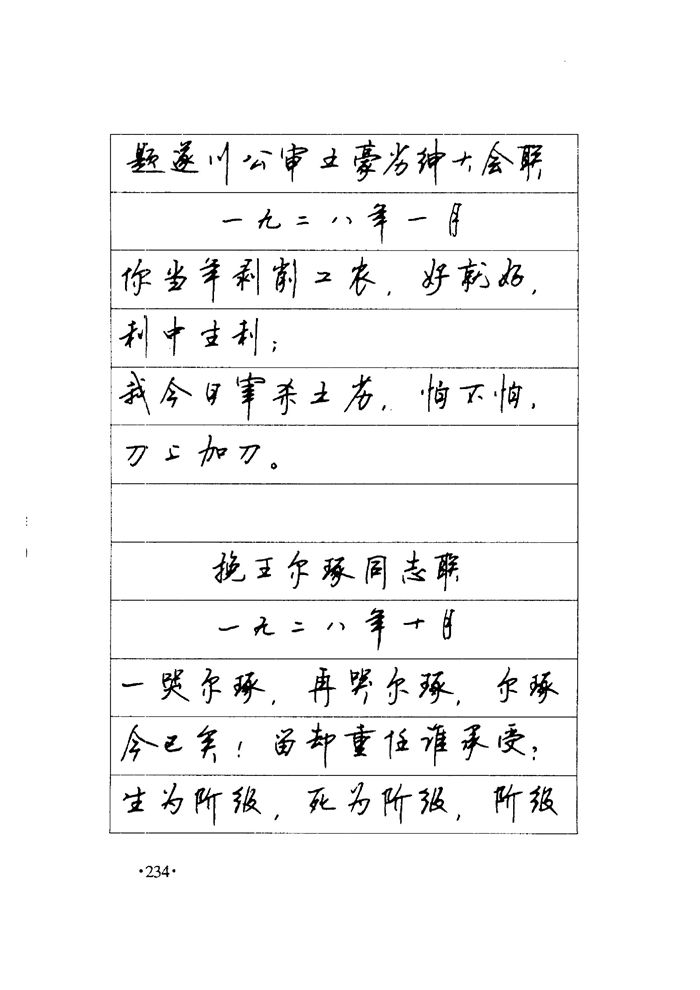 题遂川公审土豪劣绅大会联
一九二八年一月
你当年剥削工农，好就好，
利中生利；
我今日宰杀土劣，怕不怕，
刀上加刀。
挽王尔琢同志联
一九二八年十月
一哭尔琢，再哭尔琢，尔琢
今已矣！留却重任谁承受？
生为阶级，死为阶级，阶级
·234·